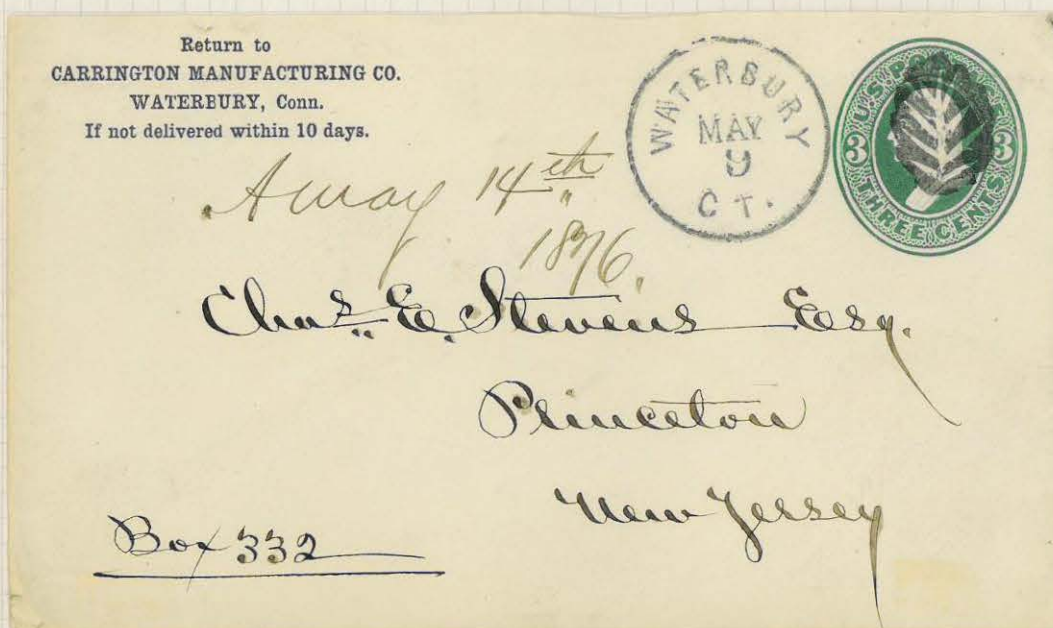 Return to
CARRINGTON MANUFACTURING CO.
WATERBURY, Conn.
If not delivered within 10 days.
WATERBURY
MAY
9
CT.
U.S. POSTAGE
3 3
THREE CENTS
May 14th
1876.
Chas. E. Stevens Esq.
Princeton
New Jersey
Box 332